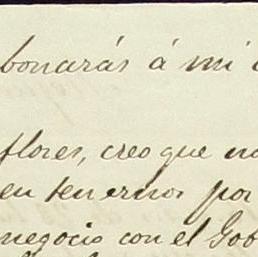 bonarás á mi
flores, creo que no
en tenernos por
negocio con el Gob